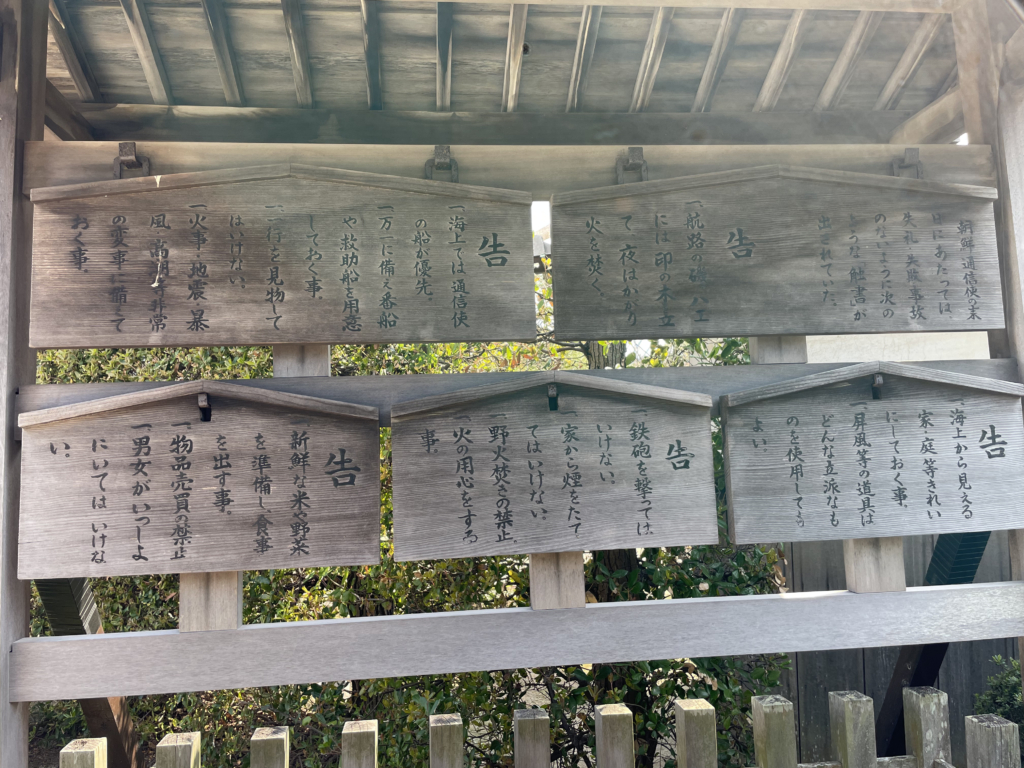 朝鮮通信使の来
日にあたっては
失礼、失敗、事故
のないように次の
ような「触書」が
出されていた。
告
一航路の磯、ハエ
には印の木立
て、夜はかがり
火を焚く。
告
一海上では通信使
の船が優先。
一万一に備え番船
や救助船を用意
しておく事。
一行を見物して
はいけない。
一火事・地震・暴
風・高潮など非常
の変事に備えて
おく事。
告
一海上から見える
家、庭等きれい
にしておく事。
一屏風等の道具は
どんな立派なも
のを使用しても
よい。
告
一鉄砲を撃ては
いけない。
一家から煙をたて
てはいけない。
一野火焚きの禁止。
一火の用心をする
事。
告
新鮮な米や野菜
を準備し、食事
を出す事。
一物品売買の禁止
一男女がいっしょ
にいては いけな
い。